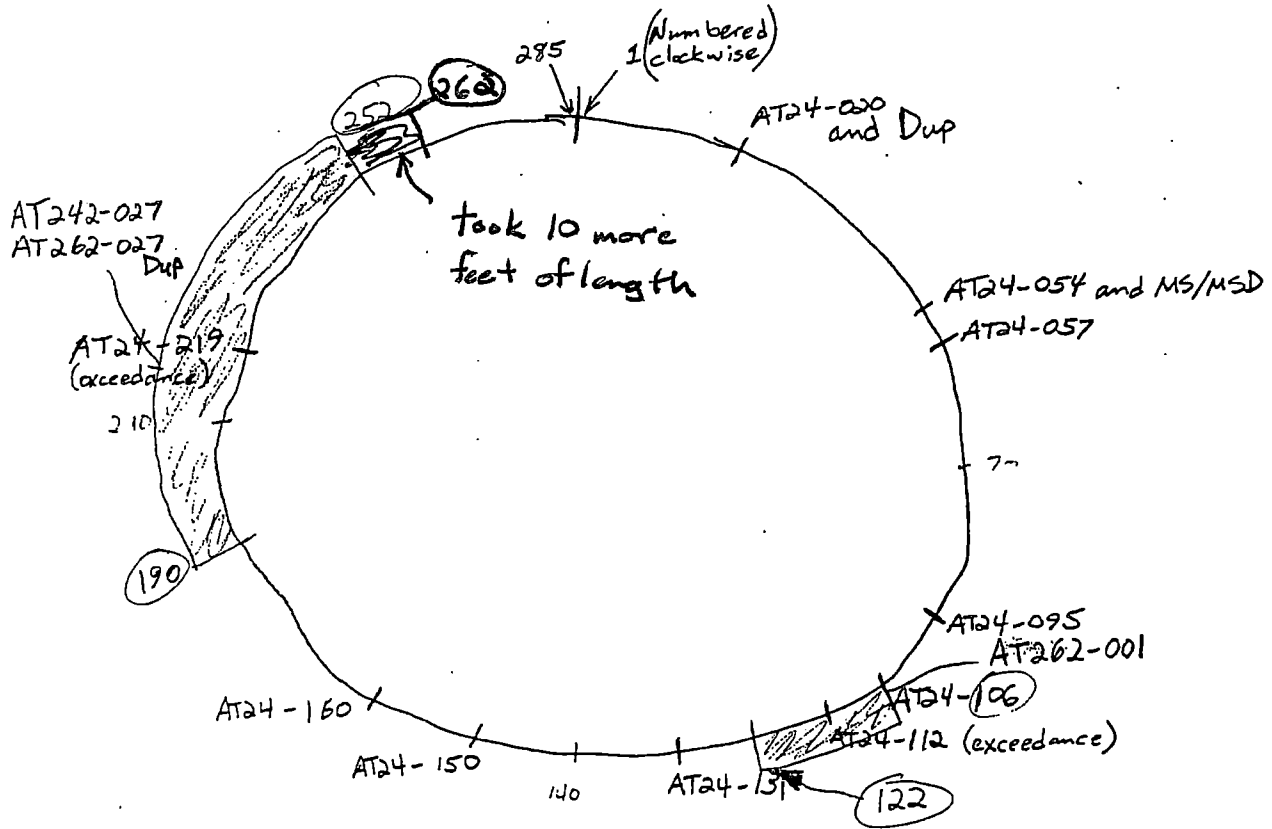 285
1 (Numbered
clockwise)
262
252
AT24-020
and Dup
took 10 more
feet of length
AT242-027
AT262-027
Dup
AT24-054 and MS/MSD
AT24-057
AT24-219
(exceedance)
210
190
AT24-095
AT262-001
AT24-106
AT24-112 (exceedance)
AT24-160
AT24-150
140
AT24-131
122